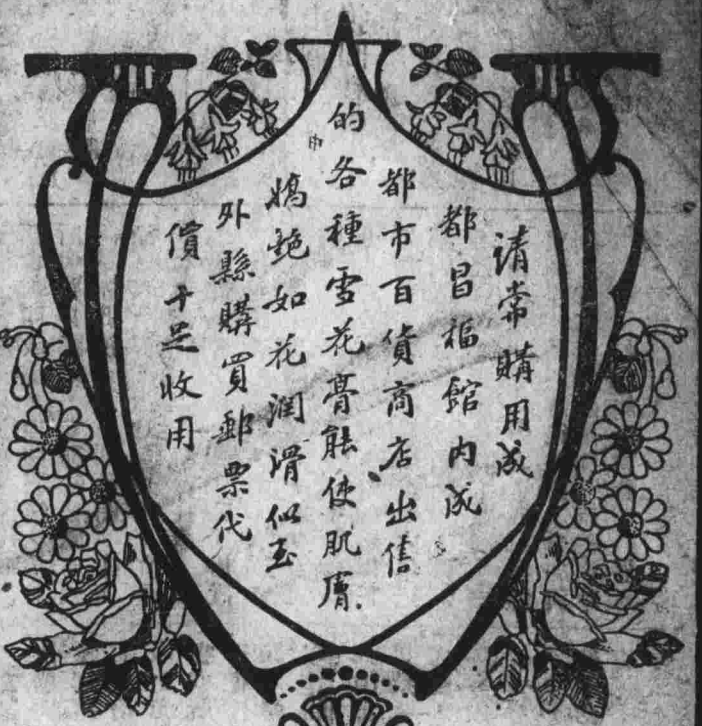 請常購用成
都昌福館内成
都市百貨商店出售
的各種雪花膏能使肌膚
嬌艶如花潤滑似玉
外縣購買郵票代
價十足收用